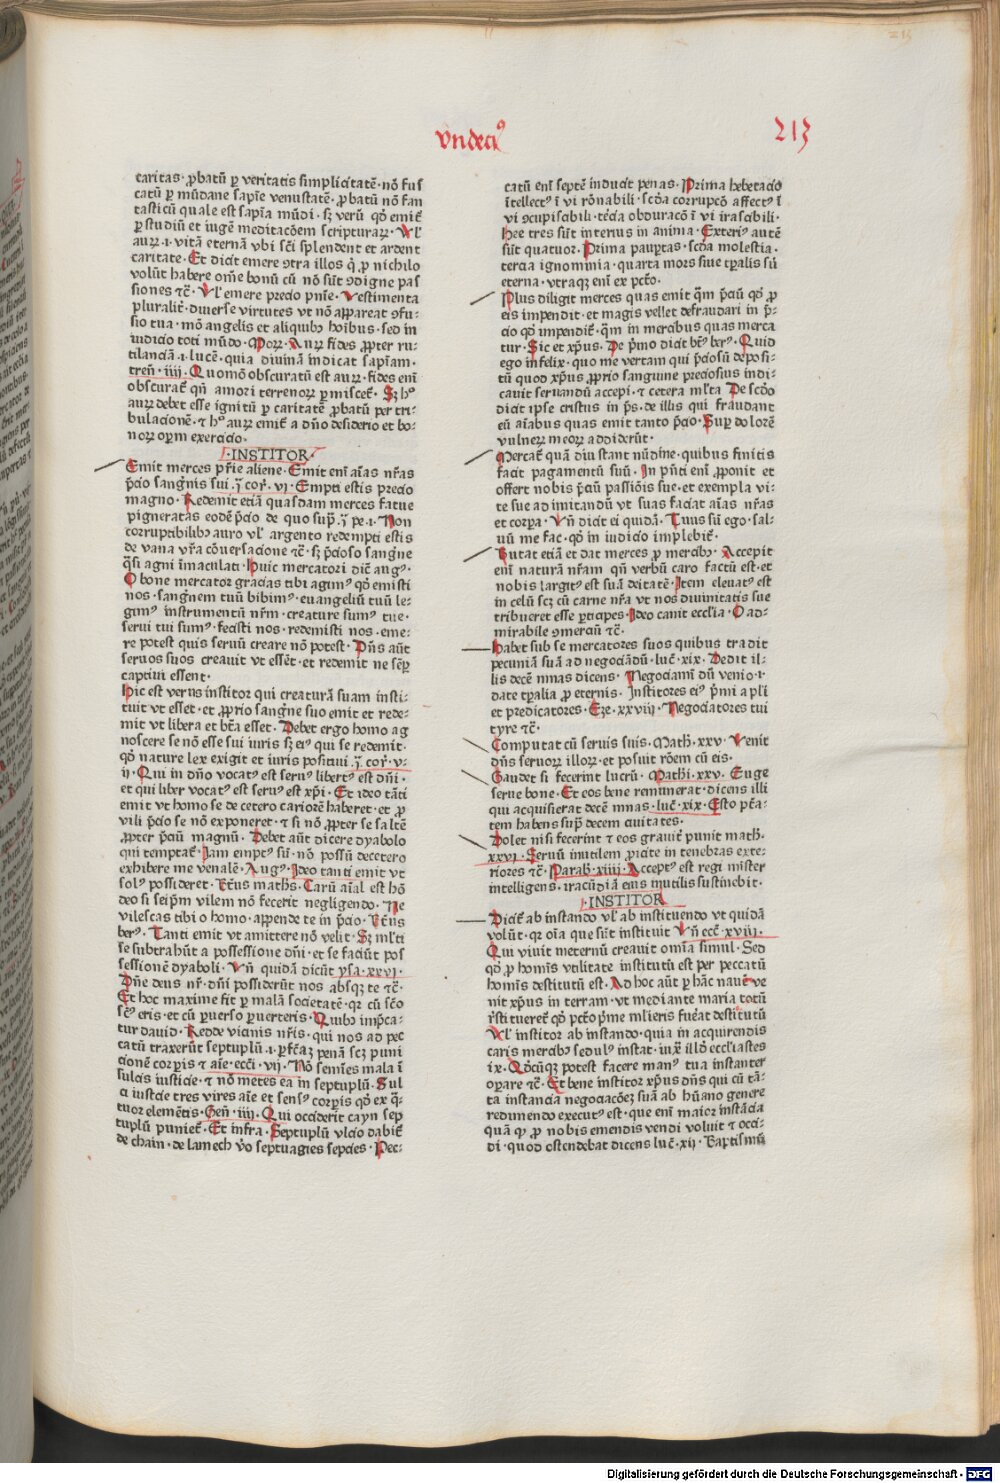 Vndeci⁹
213
caritas · ꝓbatū ꝑ veritatis simplicitatē · nō fus
catū ꝑ mūdane sapīe venustatē · ꝓbatū nō fan
tasticū quale est sapīa mūdi · sꝫ verū qd̄ emit̄
ꝑ studiū et iugē meditacōem scripturaꝝ · Vl̄
auꝝ · i · vitā eternā vbi scī splendent et ardent
caritate · Et dicit emere ꝯtra illos q̄ ꝓ nichilo
volūt habere om̄e bonū cū nō sūt ꝯdigne pas
siones tc̄ · Vl̄ emere precio pn̄ie · Vestimenta
pluralit̄ · diuerse virtutes vt nō appareat ꝯfu-
sio tua · mō angelis et aliquib₉ hoībus · sed in
iudicio toti mūdo · Moꝝ · Auꝝ fides ꝓpter ru-
tilanciā · i · lucē · quia diuinā indicat sapīam ·
tren̄ · iiij · Quomō obscuratū est auꝝ · fides enī
obscurat̄ qn̄ amori terrenoꝝ ꝑmiscet̄ · Sꝫ h₉
auꝝ debet esse ignitū ꝑ caritatē ꝓbatū per tri-
bulacionē · t h₉ auꝝ emit̄ a dn̄o desiderio et bo-
noꝝ oꝑm exercicio ·
· INSTITOR ·
Emit merces pr̄ie aliene · Emit enī aīas nr̄as
p̄cio sangn̄is sui · ꝫ cor̄ · vj · Empti estis precio
magno · Redemit etiā quasdam merces fatue
pigneratas eodē p̄cio de quo sup̄ · ꝫ pe · i · Non
corruptibilib₉ auro vl̄ argento redempti estis
de vana vr̄a cōuersacione tc̄ · sꝫ p̄cioso sangn̄e
q̄si agni īmaculati · Huic mercatori dic̄ aug₉ ·
O bone mercator gracias tibi agim₉ qd̄ emisti
nos · sangn̄em tuū bibim₉ · euangeliū tuū le-
gim₉ instrumentū nr̄m · creature sum₉ tue ·
serui tui sum₉ · fecisti nos · redemisti nos · eme-
re potest quis seruū creare nō potest · Dn̄s aūt
seruos suos creauit vt essēt · et redemit ne sēꝑ
captiui essent ·
Hic est verus institor qui creaturā suam insti-
tuit vt esset · et ꝓprio sangn̄e suo emit et rede-
mit vt libera et bt̄a esset · Debet ergo homo ag
noscere se nō esse sui iuris sꝫ ei₉ qui se redemit ·
qd̄ nature lex exigit et iuris positiui · ꝫ cor̄ · v-
ij · Qui in dn̄o vocat₉ est seru₉ libert₉ est dn̄i ·
et qui liber vocat₉ est seru₉ est xp̄i · Et ideo tāti
emit vt homo se de cetero cariorē haberet · et ꝓ
vili p̄cio se nō exponeret · t si nō ꝓpter se saltē
ꝓpter p̄ciū magnū · Debet aūt dicere dyabolo
qui temptat̄ · Iam empt₉ sū · nō possū decetero
exhibere me venalē · Aug₉ · Ideo tanti emit vt
sol₉ possideret · Bt̄us math₉ · Carū aīal est hō
deo si seip̄m vilem nō fecerit negligendo · Ne
vilescas tibi o homo · appende te in p̄cio · Bt̄us
ber₉ · Tanti emit vt amittere nō velit · Sꝫ ml̄ti
se subtrahūt a possessione dn̄i · et se faciūt pos
sessionē dyaboli · Vn̄ quidā dicūt ysa · xxvj ·
Dn̄e deus nr̄ · dn̄i possiderūt nos absqꝫ te tc̄ ·
Et hoc maxime fit ꝑ malā societatē · qꝛ cū sc̄o
sc̄₉ eris · et cū ꝑuerso ꝑuerteris · Quib₉ imp̄ca-
tur dauid · Redde vicinis nr̄is · qui nos ad pec
catū traxerūt septuplū · i · ꝑfcāꝫ penā scꝫ puni
cionē corꝑis t aīe · ecci · vij · Nō semīes mala ī
sulcis iusticie · t nō metes ea in septuplū · Sul
ci iusticie tres vires aīe et sens₉ corꝑis qd̄ ex q̄-
tuor elemētis · Gen̄ · iiij · Qui occiderit cayn sep
tuplū puniet̄ · Et infra · Septuplū vlcio dabit̄
de chain · de lamech v̄o septuagies sepcies · Pec-
catū enī septē inducit penas · Prima hebetacio
ītellect₉ ī vi rōnabili · scd̄a corrupcō affect₉ ī
vi ꝯcupiscibili · t̄cia obduracō ī vi irascibili ·
Hee tres sūt interius in anima · Exteri₉ autē
sūt quatuor · Prima pauꝑtas · scd̄a molestia ·
tercia ignominia · quarta mors siue tꝑalis siī
eterna · vtraqꝫ enī ex pctō ·
Plus diligit merces quas emit q̄m p̄ciū qd̄ ꝓ
eis impendit · et magis vellet defraudari in p̄-
cio qd̄ impendit̄ · q̄m in mercibus quas merca
tur · Sic et xp̄us · De p̄mo dicit bt̄₉ ber₉ · Quid
ego infelix · quo me vertam qui p̄ciosū deposi-
tū quod xp̄us ꝓprio sanguine preciosius indi-
cauit seruandū accepi · t cetera ml̄ta De scd̄o
dicit ipse cristus in ps̄ · de illis qui fraudant
eū aīabus quas emit tanto p̄cio · Suꝑ dolorē
vulneꝝ meoꝝ addiderūt ·
Mercat̄ quā diu stant nūdine · quibus finitis
facit pagamentū suū · In pn̄ti enī ꝓponit et
offert nobis p̄ciū passiōis sue · et exempla vi-
te sue ad imitandū vt suas faciat aīas nr̄as
et corꝑa · Vn̄ dicit ei quidā · Tuus sū ego · sal-
uū me fac · qd̄ in iudicio implebit̄ ·
Mutat etiā et dat merces ꝓ mercib₉ · Accepit
enī naturā nr̄am qn̄ verbū caro factū est · et
nobis largit₉ est suā deitatē · Item eleuat₉ est
in celū scꝫ cū carne nr̄a vt nos diuinitatis sue
tribueret esse ꝑticipes · Ideo canit eccl̄ia · O ad-
mirabile ꝯmerciū tc̄ ·
Habet sub se mercatores suos quibus tradit
pecuniā suā ad negociādū · luc̄ · xix · Dedit il-
lis decē mnas dicens · Negociamī dū venio · i ·
date tꝑalia ꝓ eternis · Institores ei₉ p̄mi apl̄i
et predicatores · Eze · xxviij · Negociatores tui
tyre tc̄ ·
Computat cū seruis suis · Math̄ · xxv · Venit
dn̄s seruoꝝ illoꝝ · et posuit rōem cū eis ·
Gaudet si fecerint lucrū · Mathi · xxv · Euge
serue bone · Et eos bene remunerat · dicens illi
qui acquisierat decē mnas · luc̄ · xix · Esto pt̄a-
tem habens sup̄ decem ciuitates ·
Dolet nisi fecerint t eos grauit̄ punit math̄ ·
xxvj · Seruū inutilem ꝓicite in tenebras exte-
riores tc̄ · Parab̄ · xiiij · Accept₉ est regi mīster
intelligens · iracūdiā eius inutilis sustinebit ·
· INSTITOR ·
Dicit̄ ab instando vl̄ ab instituendo vt quidā
volūt · qꝛ oīa que sūt instituit Vn̄ ecc̄ · xviij ·
Qui viuit ineternū creauit omīa simul · Sed
qd̄ ꝓ homīs vtilitate institutū est per peccatū
homīs destitutū est · Ad hoc aūt ꝑ hāc nauē ve
nit xp̄us in terram · vt mediante maria totū
r̄stitueret̄ qd̄ pctō p̄me ml̄ieris fuēat destitutū
Vl̄ institor ab instando · quia in acquirendis
caris mercib₉ sedul₉ instat · iuxͣ illd̄ eccl̄iastes
ix · Qd̄cūqꝫ potest facere man₉ tua instanter
oꝑare tc̄ · Et bene institor xp̄us dn̄s qui cū tā-
ta instancia negociacōeꝫ suā ab hūano genere
redimendo executꝰ est · que enī maior instācia
quā qꝫ ꝓ nobis emendis vendi voluit t occi-
di · quod ostendebat dicens luc̄ · xij · Baptismū
Digitalisierung gefördert durch die Deutsche Forschungsgemeinschaft - DFG